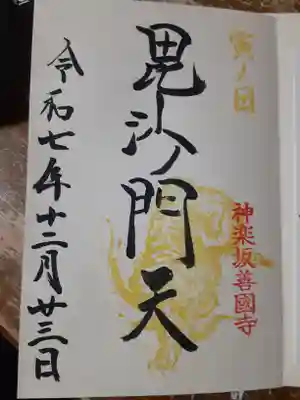 寅ノ日
毘沙門天
神楽坂善國寺
令和七年十二月廿三日